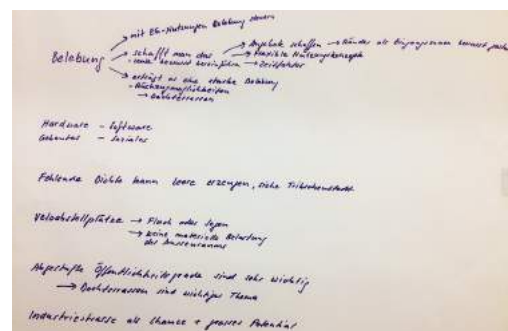 mit EG-Nutzungen Belebung steuern
Belebung
schafft man das
Angebote schaffen → Ränder als Eingangszonen bewusst
flexible Nutzungskonzepte
- Leute bewusst
→ Zeitfaktor
erträgt es eine starke Belebung
→ Dachterrassen
Hardware - Software
Gebautes - Soziales
Fehlende Dichte kann Leere erzeugen, siehe Tribschenstadt
Veloabstellplätze → Flach oder
→ keine materielle Belastung
des Aussenraums
Abgestufte Öffentlichkeitsgrade sind sehr wichtig
→ Dachterrassen sind wichtiges Thema
Industriestrasse als Chance + grosses Potential